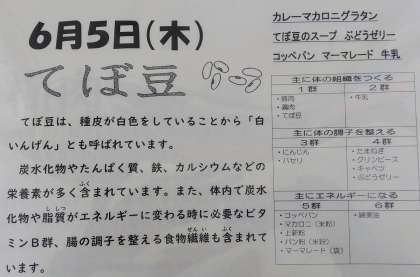 6月5日(木)
てぼ豆
てぼ豆は、種皮が白色をしていることから「白
いんげん」とも呼ばれています。
炭水化物やたんぱく質、鉄、カルシウムなどの
栄養素が多く含まれています。また、体内で炭水
化物や脂質がエネルギーに変わる時に必要なビタ
ミンB群、腸の調子を整える食物繊維も含まれて
います。
カレーマカロニグラタン
てぼ豆のスープ ぶどうゼリー
コッペパン マーマレード 牛乳
主に体の組織をつくる
1群 2群
・豚肉
・鶏肉
・てぼ豆
・牛乳
主に体の調子を整える
3群 4群
・にんじん
・パセリ
・たまねぎ
・グリンピース
・キャベツ
・ぶどうゼリー
主にエネルギーになる
5群 6群
・コッペパン
・マカロニ(米粉)
・上新粉
・パン粉(米粉)
・マーマレード(袋)